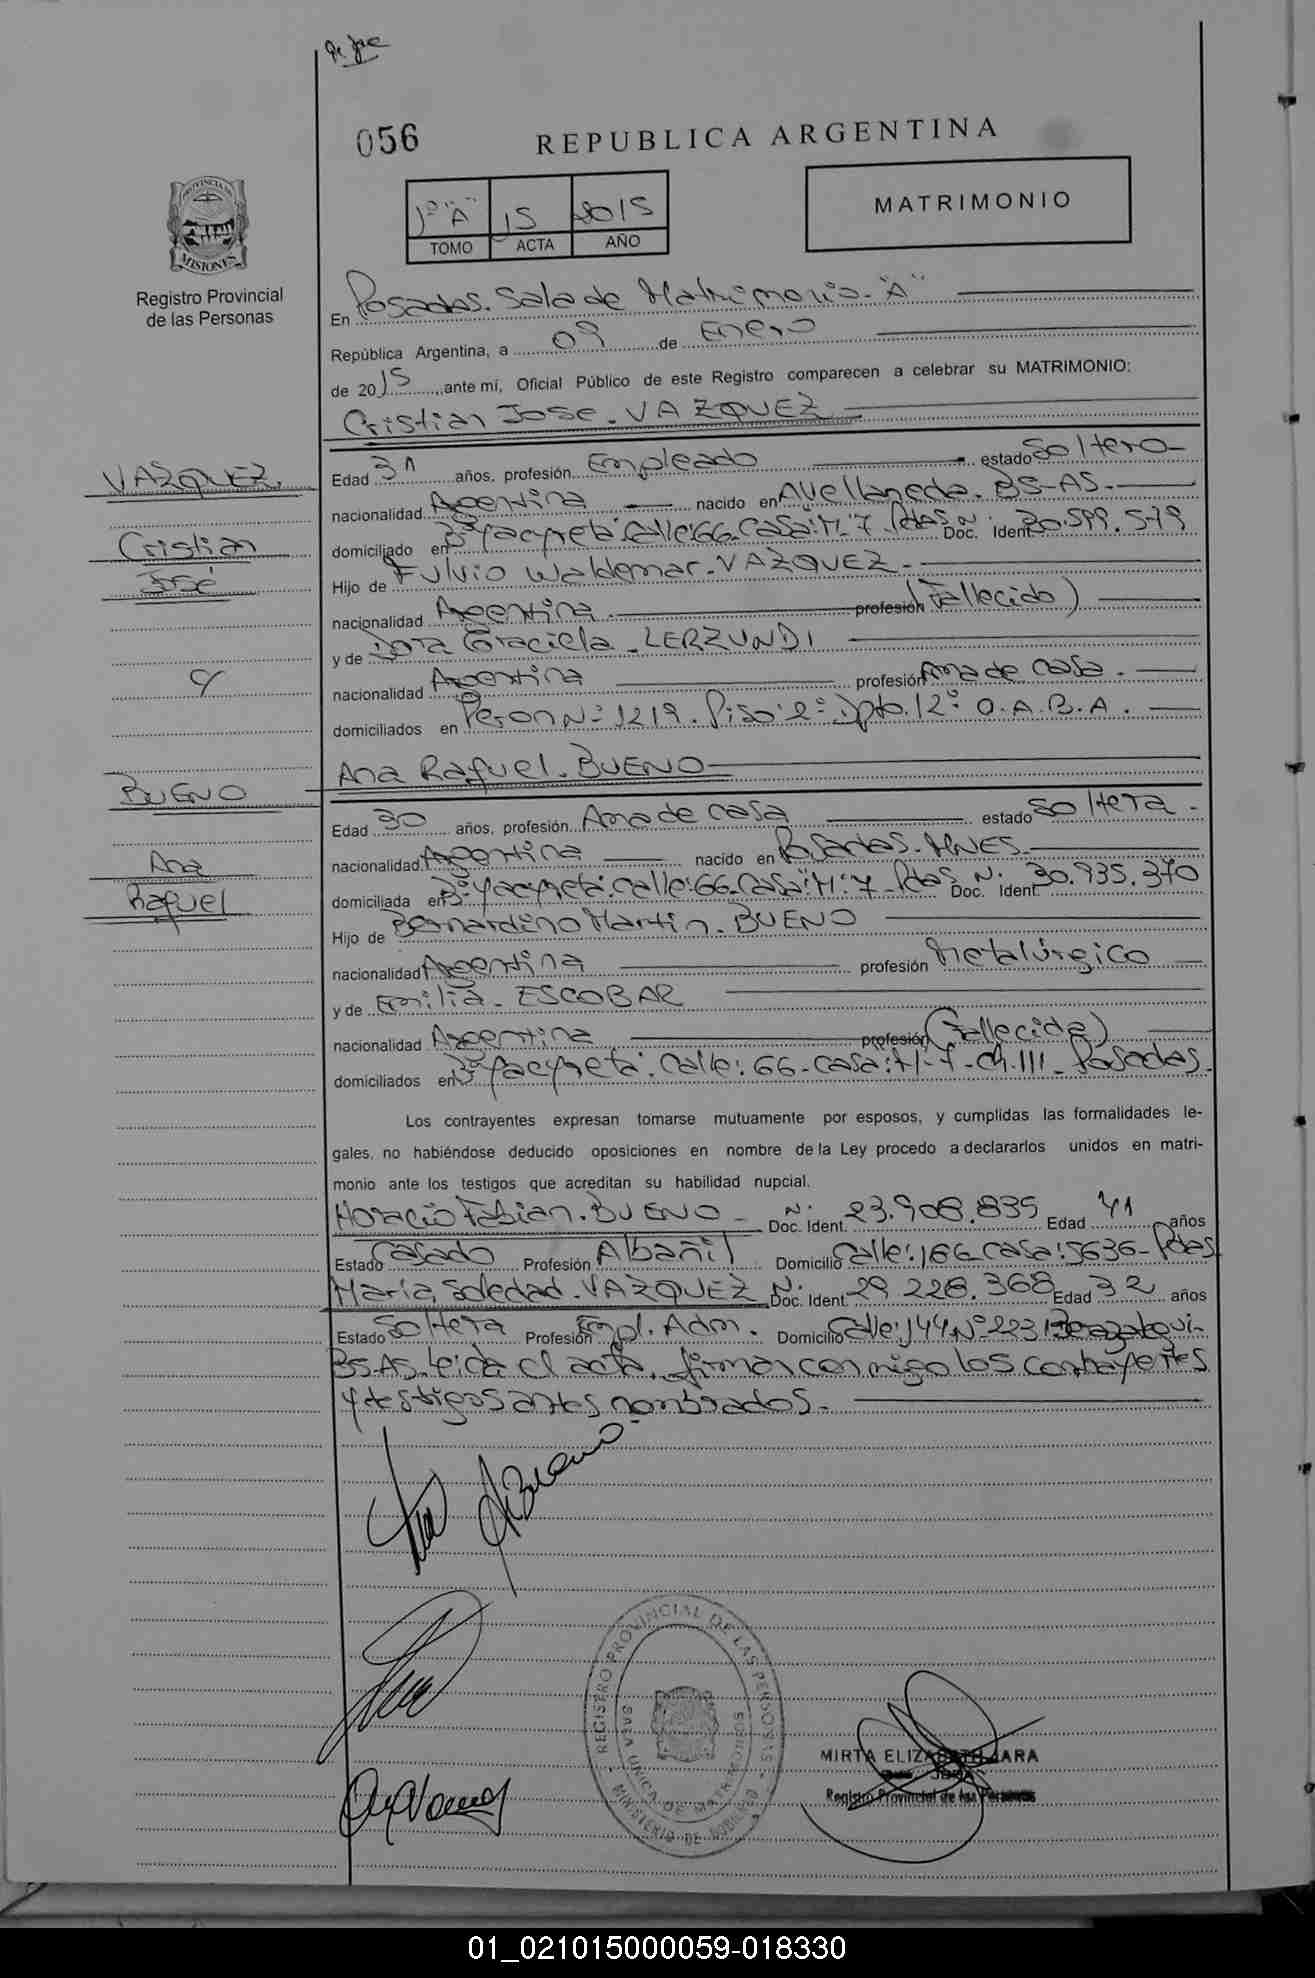 056
REPUBLICA ARGENTINA
1º "A" 15 2015
TOMO ACTA AÑO
MATRIMONIO
PROVINCIA DE
MISIONES
Registro Provincial
de las Personas
En Posadas. Sala de Matrimonio-"A"
República Argentina, a 09 de Enero
de 2015, ante mí, Oficial Público de este Registro comparecen a celebrar su MATRIMONIO:
Cristian Jose. VAZQUEZ
VAZQUEZ
Cristian
José
c/
BUENO
Ana
Raquel
Edad 31 años, profesión Empleado estado Soltero-
nacionalidad Argentina nacido en Avellaneda. BS-AS.
domiciliado en Bº Yacyreta Calle:66-Casa:"H":7 Pdas Doc. Ident. Nº 30.599.579
Hijo de Fulvio Waldemar. VAZQUEZ.
nacionalidad Argentina. profesión (Fallecido)
y de Dora Graciela. LERZUNDI
nacionalidad Argentina profesión Ama de casa.
domiciliados en Peron Nº 1219. Piso 2º Dpto. 12º C.A.B.A.
Ana Raquel. BUENO
Edad 30 años, profesión Ama de casa estado Soltera.
nacionalidad Argentina nacido en Posadas. MNES.
domiciliada en Bº Yacyreta. calle:66-Casa:"H":7-Pdas Doc. Ident. Nº 30.935.370
Hijo de Bernardino Martin. BUENO
nacionalidad Argentina profesión Metalúrgico
y de Emilia. ESCOBAR
nacionalidad Argentina profesión (Fallecida)
domiciliados en Bº Yacyreta. Calle: 66-Casa:H-7-Ch.111- Posadas.
Los contrayentes expresan tomarse mutuamente por esposos, y cumplidas las formalidades le-
gales, no habiéndose deducido oposiciones en nombre de la Ley procedo a declararlos unidos en matri-
monio ante los testigos que acreditan su habilidad nupcial.
Horacio Fabian. BUENO - Doc. Ident. Nº 23.908.839 Edad 41 años
Estado Casado Profesión Albañil Domicilio Calle:166-Casa:5636-Pdas
Maria Soledad. VAZQUEZ Doc. Ident. Nº 29.228.368 Edad 32 años
Estado Soltera Profesión Empl. Adm. Domicilio Calle:144 Nº 2231 Berazategui-
BS.AS. Leida el acta, firman conmigo los contrayentes
y testigos antes nombrados.
REGISTRO PROVINCIAL DE LAS PERSONAS
SALA UNICA DE MATRIMONIOS
MINISTERIO DE GOBIERNO
MIRTA ELIZABETH JARA
Registro Provincial de las Personas
01_021015000059-018330